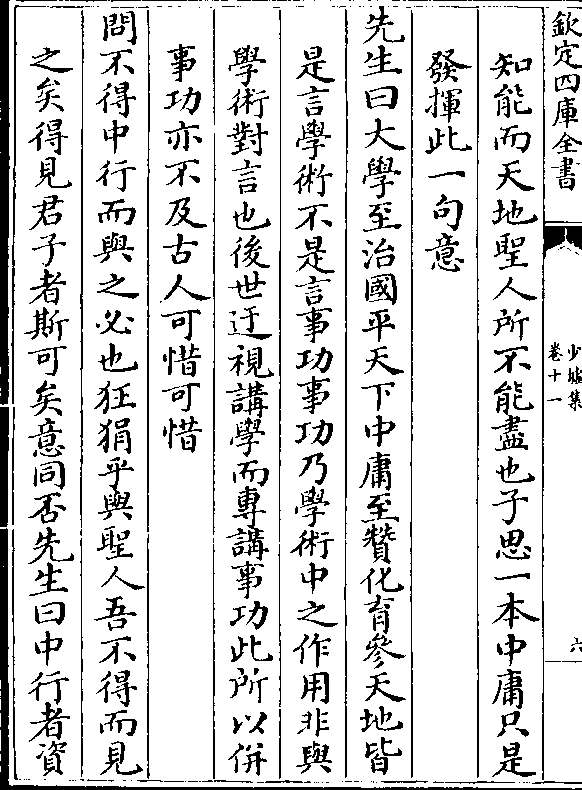 欽定四庫全書
少墟集
卷十一
六
知能而天地聖人所不能盡也子思一本中庸只是
發揮此一句意
先生曰大學至治國平天下中庸至贊化育參天地皆
是言學術不是言事功事功乃學術中之作用非與
學術對言也後世迂視講學而專講事功此所以併
事功亦不及古人可惜可惜
問不得中行而與之必也狂狷乎與聖人吾不得而見
之矣得見君子者斯可矣意同否先生曰中行者資